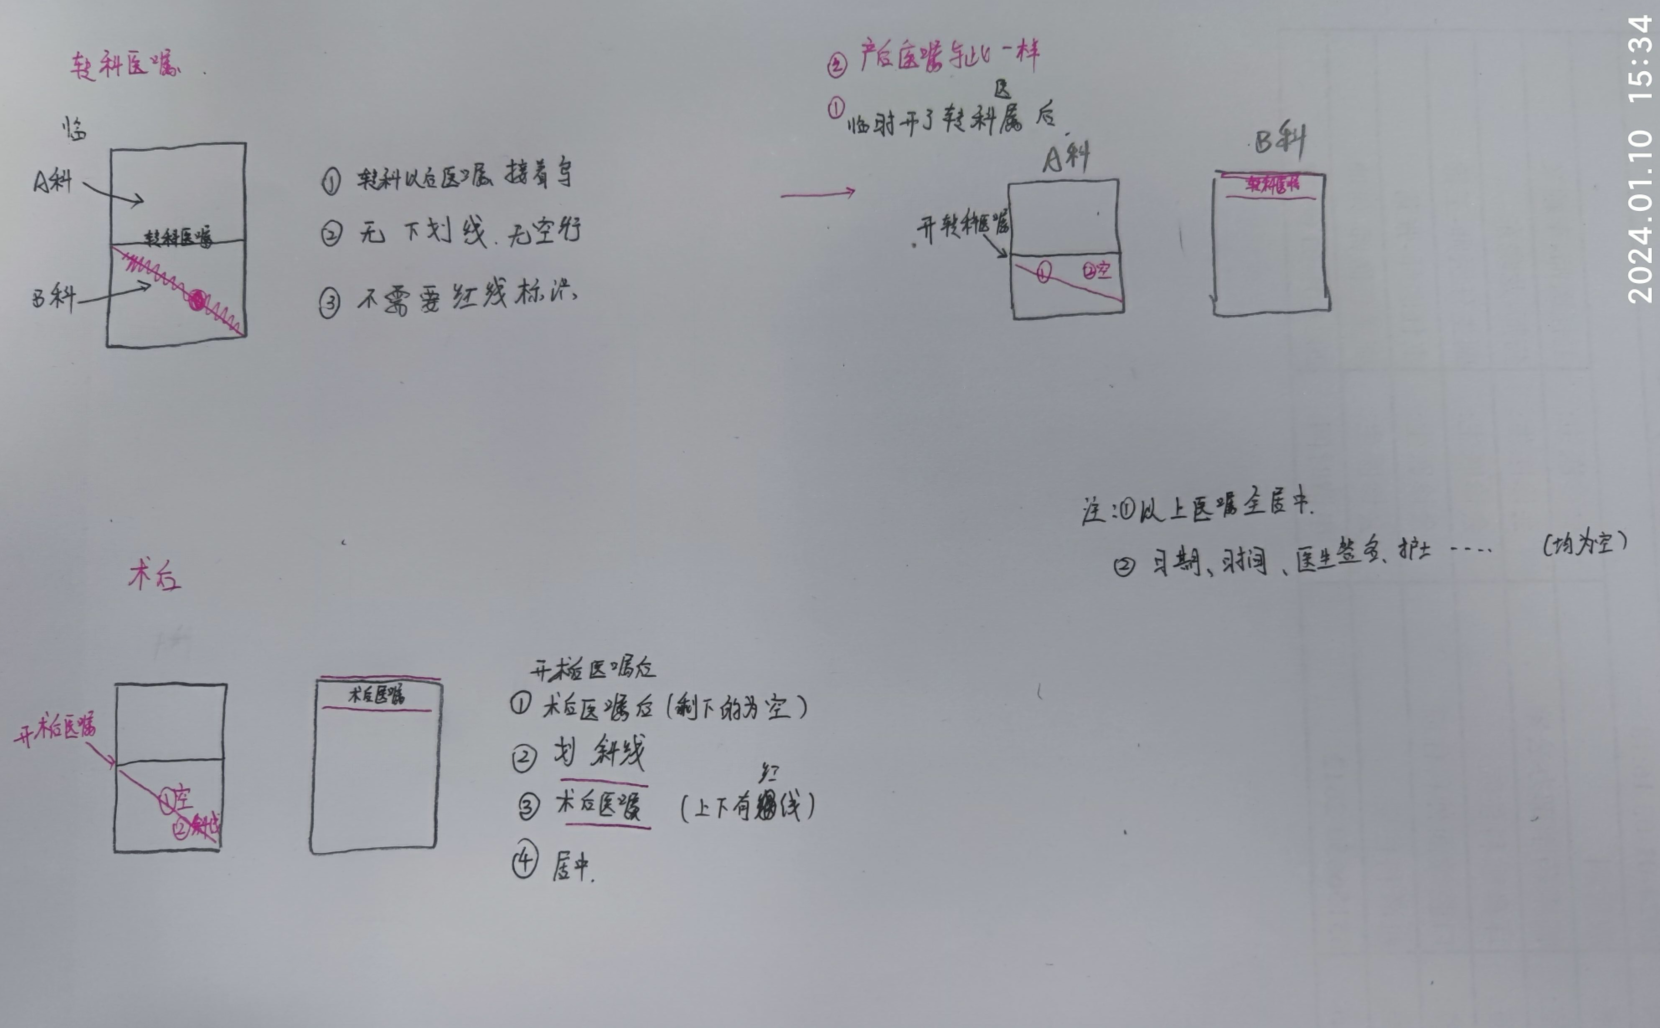 转科医嘱.
临
A科
转科医嘱
B科
① 转科以后医嘱接着写
② 无下划线.无空行
③ 不需要红线标识.
② 产后医嘱与此一样
① 临时开了转科医嘱后.
A科
开转科医嘱
①
②空
B科
转科医嘱
注:①以上医嘱全居中.
② 日期、时间、医生签名、护士 ---- (均为空)
术后
开术后医嘱
①空
②斜线
术后医嘱
开术后医嘱后
① 术后医嘱后(剩下的为空)
② 划斜线
③ 术后医嘱 (上下有红线)
④ 居中.
2024.01.10 15:34